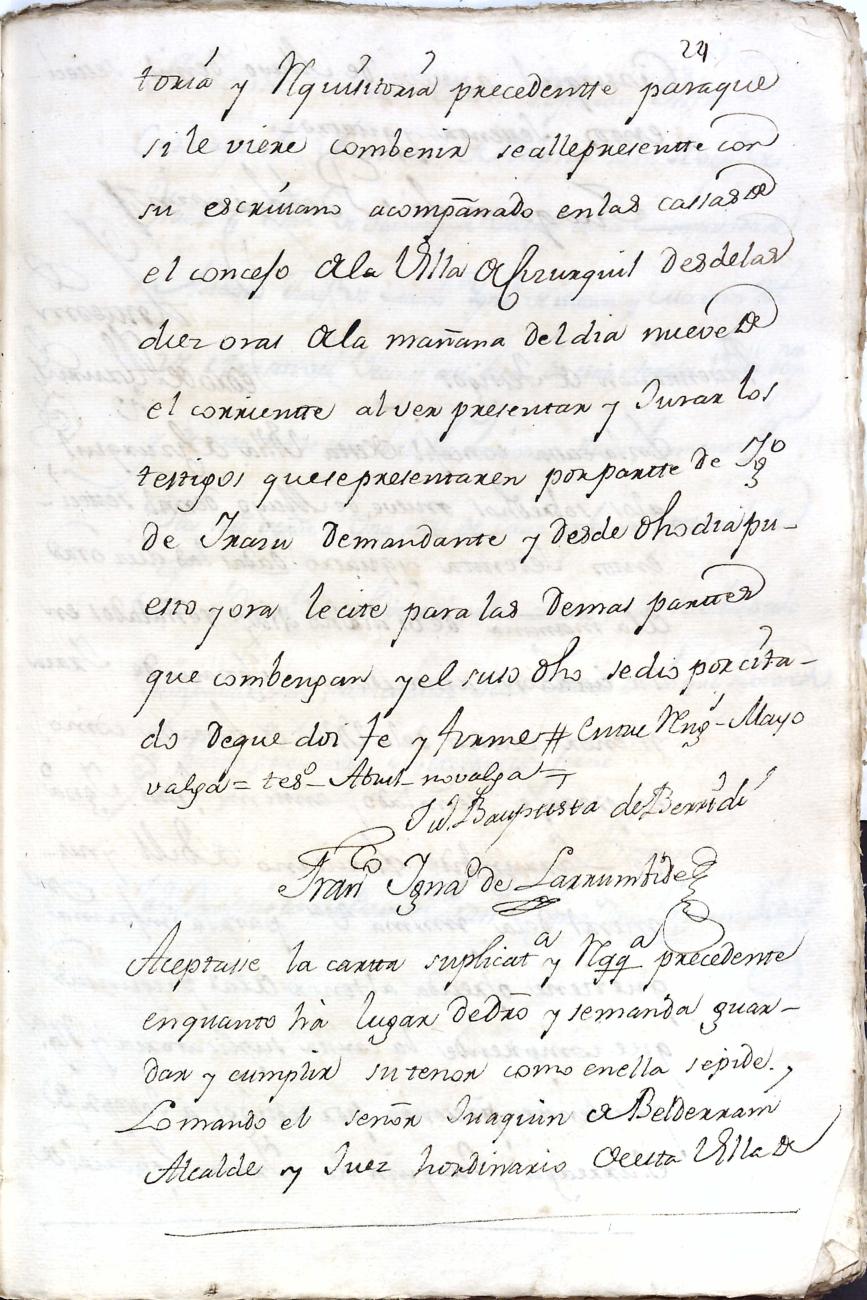 24
toria y Rquisitoria precedentte paraque
si le viere combenir seallepresentte con
su escrivano acompañado enlas cassas de
el concejo de la Villa de Cizurquil desdelas
diez oras de la mañana del dia nueve de
el corriente al ver presentar y Jurar los
testigos quesepresentaren porpartte de
de Irazu Demandante y desde dho dia pu-
esto y ora lecite para las demas parttes
que combengan y el suso dho sedio por cita-
do deque doi fe y firme # Entre Rng.s - Mayo
valga = tesº - Abril - no valga =
Juº Bauptista de Berridi
Franco Ignaº de Larrumbide
Aceptasse la cartta suplicatª y Rqqª precedente
enquanto hà lugar dedrō y semanda guar-
dar y cumplir su tenor como enella sepide. y
Lo mando el señor Juaquin de Belderrain
Alcalde y Juez hordinario de esta Villa de